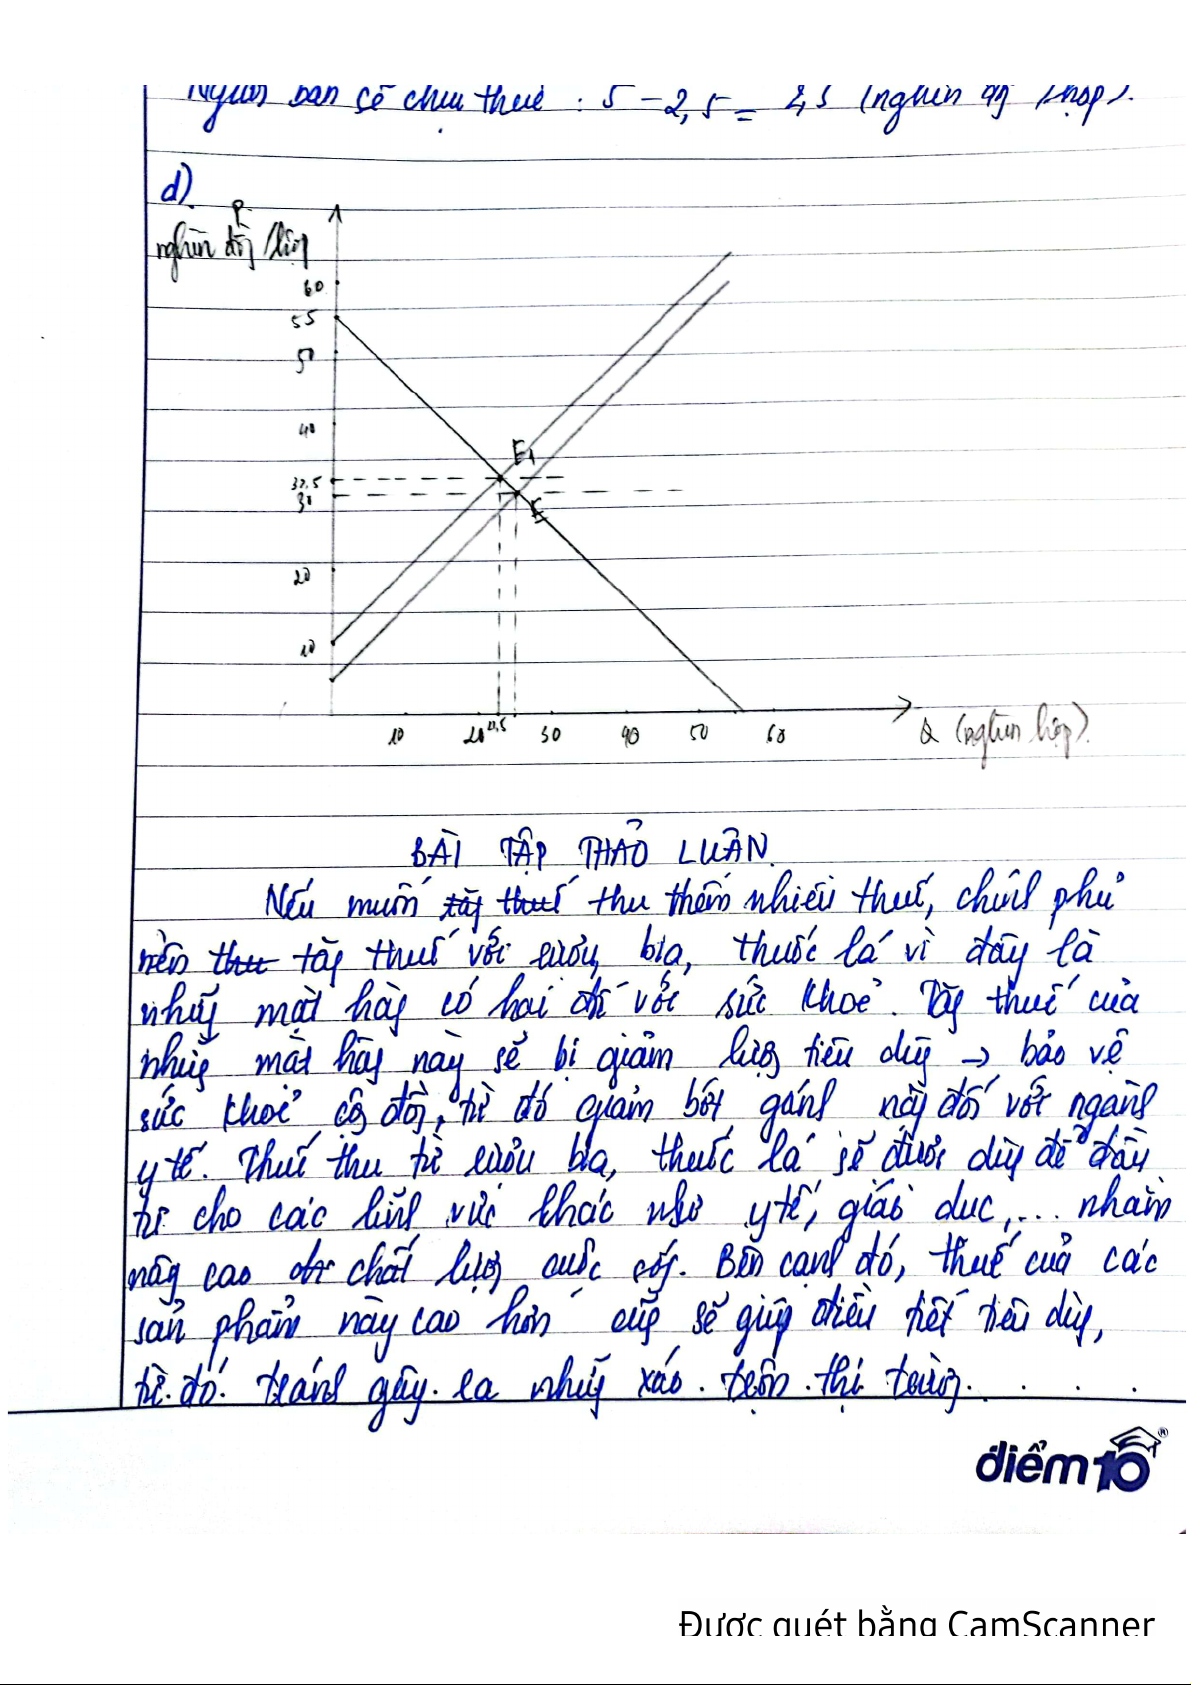 Người bán sẽ chịu thuế : 5 - 2,5 = 2,5 (nghìn đồng /hộp).
d)
P
nghìn đồng /hộp
60
55
50
40
32,5
30
20
10
E1
E
10 20 22,5 30 40 50 60
Q (nghìn hộp).
BÀI TẬP THẢO LUẬN.
Nếu muốn tăng thuế thu thêm nhiều thuế, chính phủ
nên thu tăng thuế với rượu, bia, thuốc lá vì đây là
những mặt hàng có hại đối với sức khoẻ. Tăng thuế của
những mặt hàng này sẽ bị giảm lượng tiêu dùng → bảo vệ
sức khoẻ cộng đồng, từ đó giảm bớt gánh nặng đối với ngành
y tế. Thuế thu từ rượu bia, thuốc lá sẽ được dùng để đầu
tư cho các lĩnh vực khác như y tế, giáo dục,... nhằm
nâng cao chất lượng cuộc sống. Bên cạnh đó, thuế của các
sản phẩm này cao hơn cũng sẽ giúp điều tiết tiêu dùng,
từ đó tránh gây ra những xáo trộn thị trường.
điểm 10
Được quét bằng CamScanner